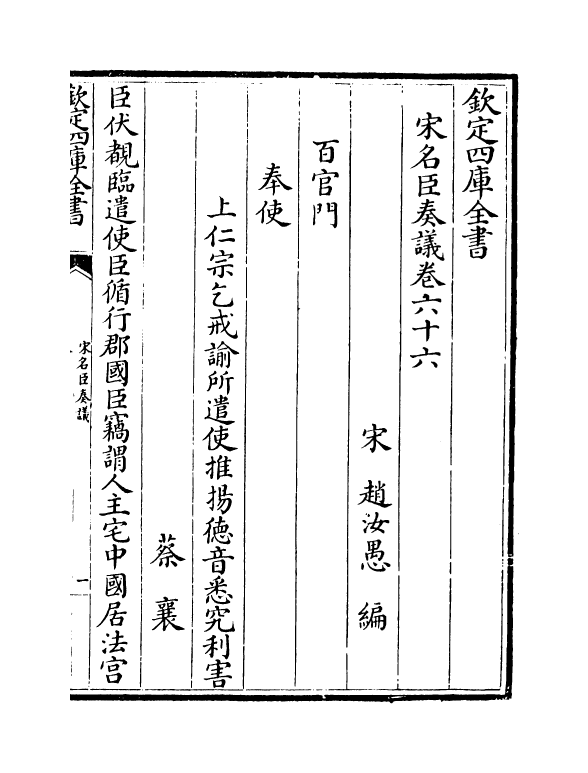 欽定四庫全書
宋名臣奏議卷六十六
宋 趙汝愚 編
百官門
奉使
上仁宗乞戒諭所遣使推揚德音悉究利害
蔡襄
臣伏覩臨遣使臣循行郡國臣竊謂人主宅中國居法宫
欽定四庫全書
宋名臣奏議
一